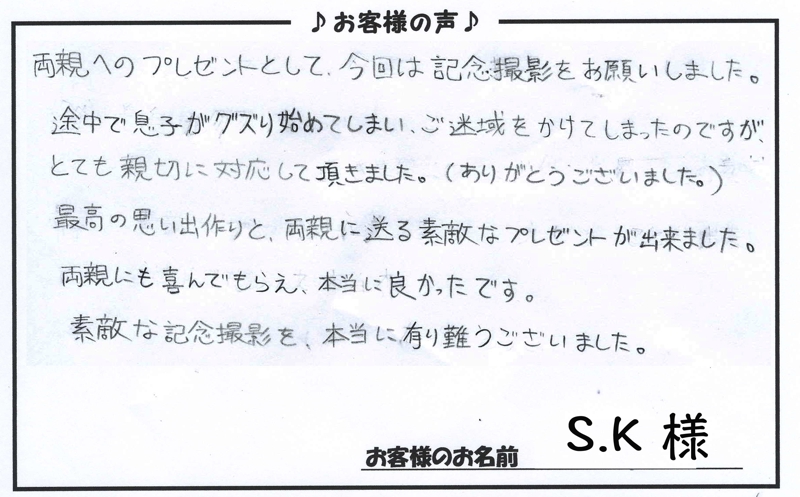 ♪お客様の声♪
両親へのプレゼントとして、今回は記念撮影をお願いしました。
途中で息子がグズり始めてしまい、ご迷域をかけてしまったのですが、
とても親切に対応して頂きました。(ありがとうございました。)
最高の思い出作りと、両親に送る素敵なプレゼントが出来ました。
両親にも喜んでもらえ、本当に良かったです。
素敵な記念撮影を、本当に有り難うございました。
お客様のお名前 S.K 様